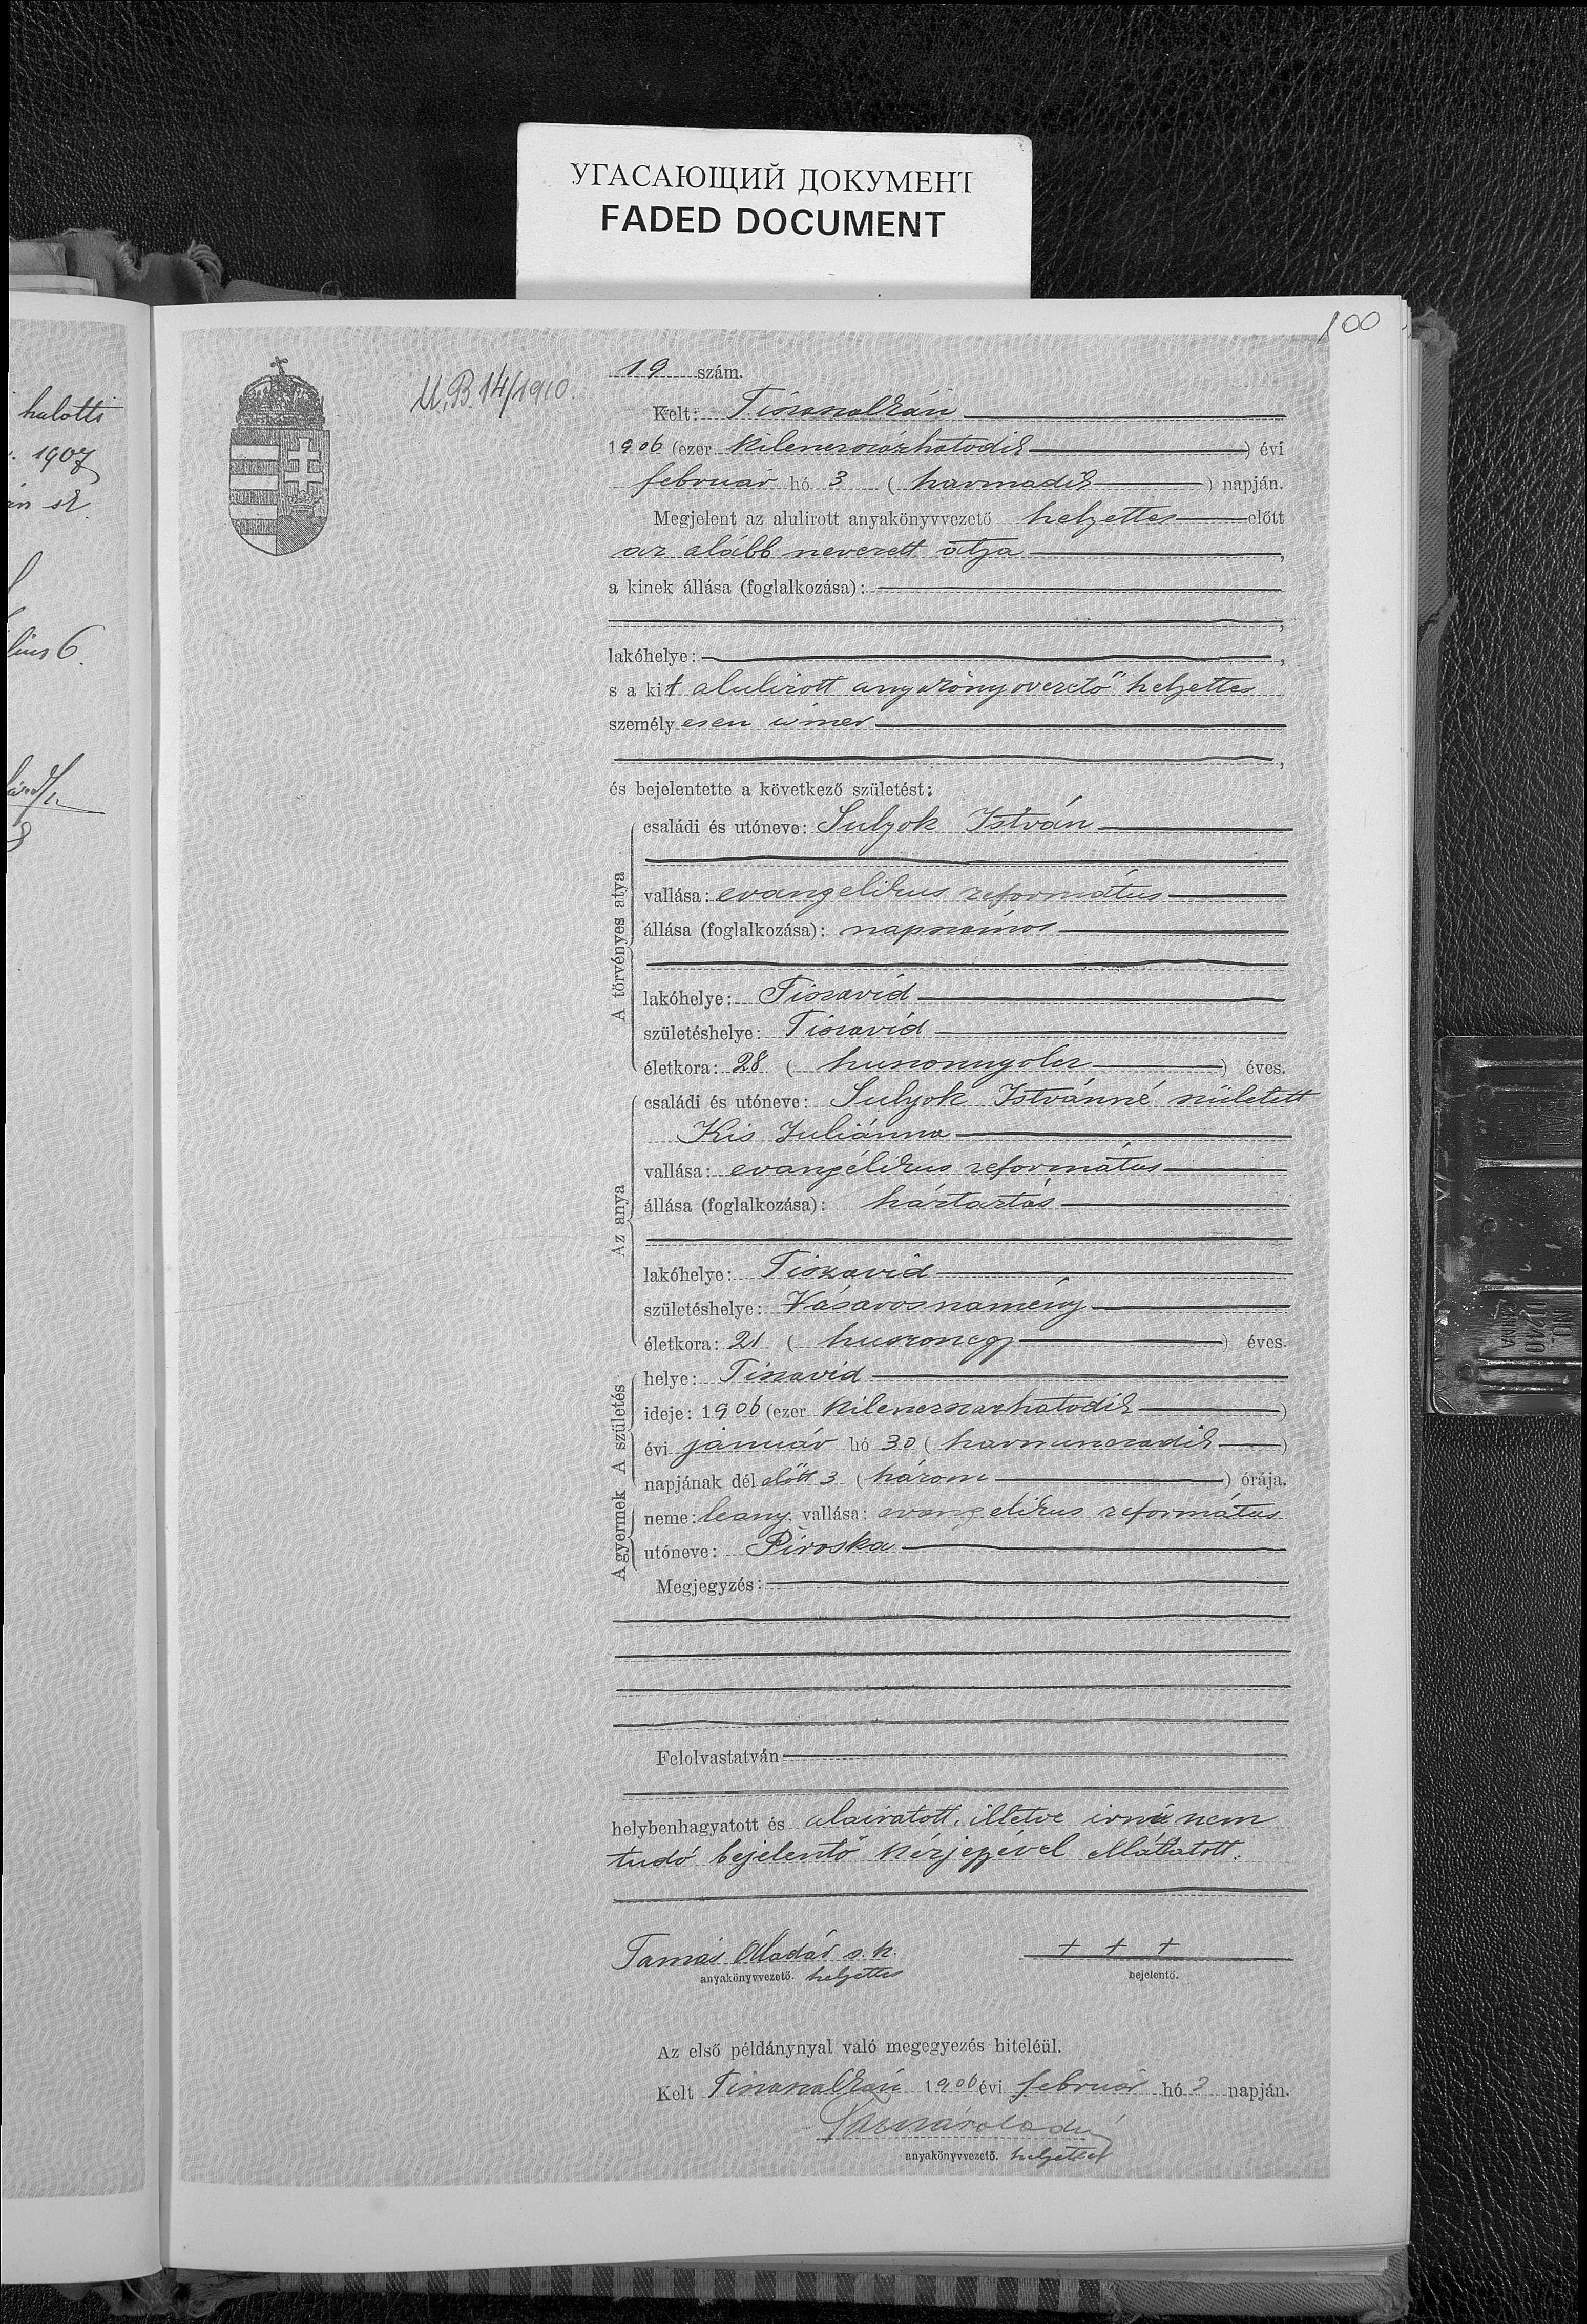 УГАСАЮЩИЙ ДОКУМЕНТ
FADED DOCUMENT
100
halotti
1907
án sz.
lius 6.
U.B. 14/1910.
19 szám.
Kelt: Tiszaszalkán
1906 (ezer kilenczszázhatodik) évi
február hó 3 (harmadik) napján.
Megjelent az alulirott anyakönyvvezető helyettes előtt
az alább nevezett atya,
a kinek állása (foglalkozása):
lakóhelye:
s a kit alulirott anyakönyvvezető helyettes
személyesen ismer
és bejelentette a következő születést:
A törvényes atya
családi és utóneve: Sulyok István
vallása: evangelikus református
állása (foglalkozása): napszámos
lakóhelye: Tiszavid
születéshelye: Tiszavid
életkora: 28 (huszonnyolcz) éves.
Az anya
családi és utóneve: Sulyok Istvánné született
Kis Juliánna
vallása: evangélikus református
állása (foglalkozása): háztartás
lakóhelye: Tiszavid
születéshelye: Vásárosnamény
életkora: 21 (huszonegy) éves.
A születés
helye: Tiszavid
ideje: 1906 (ezer kilenczszázhatodik)
évi január hó 30 (harminczadik)
napjának délelőtt 3 (három) órája.
A gyermek
neme: leany, vallása: evangelikus református
utóneve: Piroska
Megjegyzés:
Felolvastatván
helybenhagyatott és alairatott, illetve irni nem
tudó bejelentő kézjegyével elláttatott.
Tamás Aladár s.k. + + +
anyakönyvvezető. helyettes bejelentő.
Az első példánynyal való megegyezés hiteléül.
Kelt Tiszaszalkán 1906 évi február hó 3 napján.
Tamás Aladár
anyakönyvvezető. helyettes
NO.
D1240